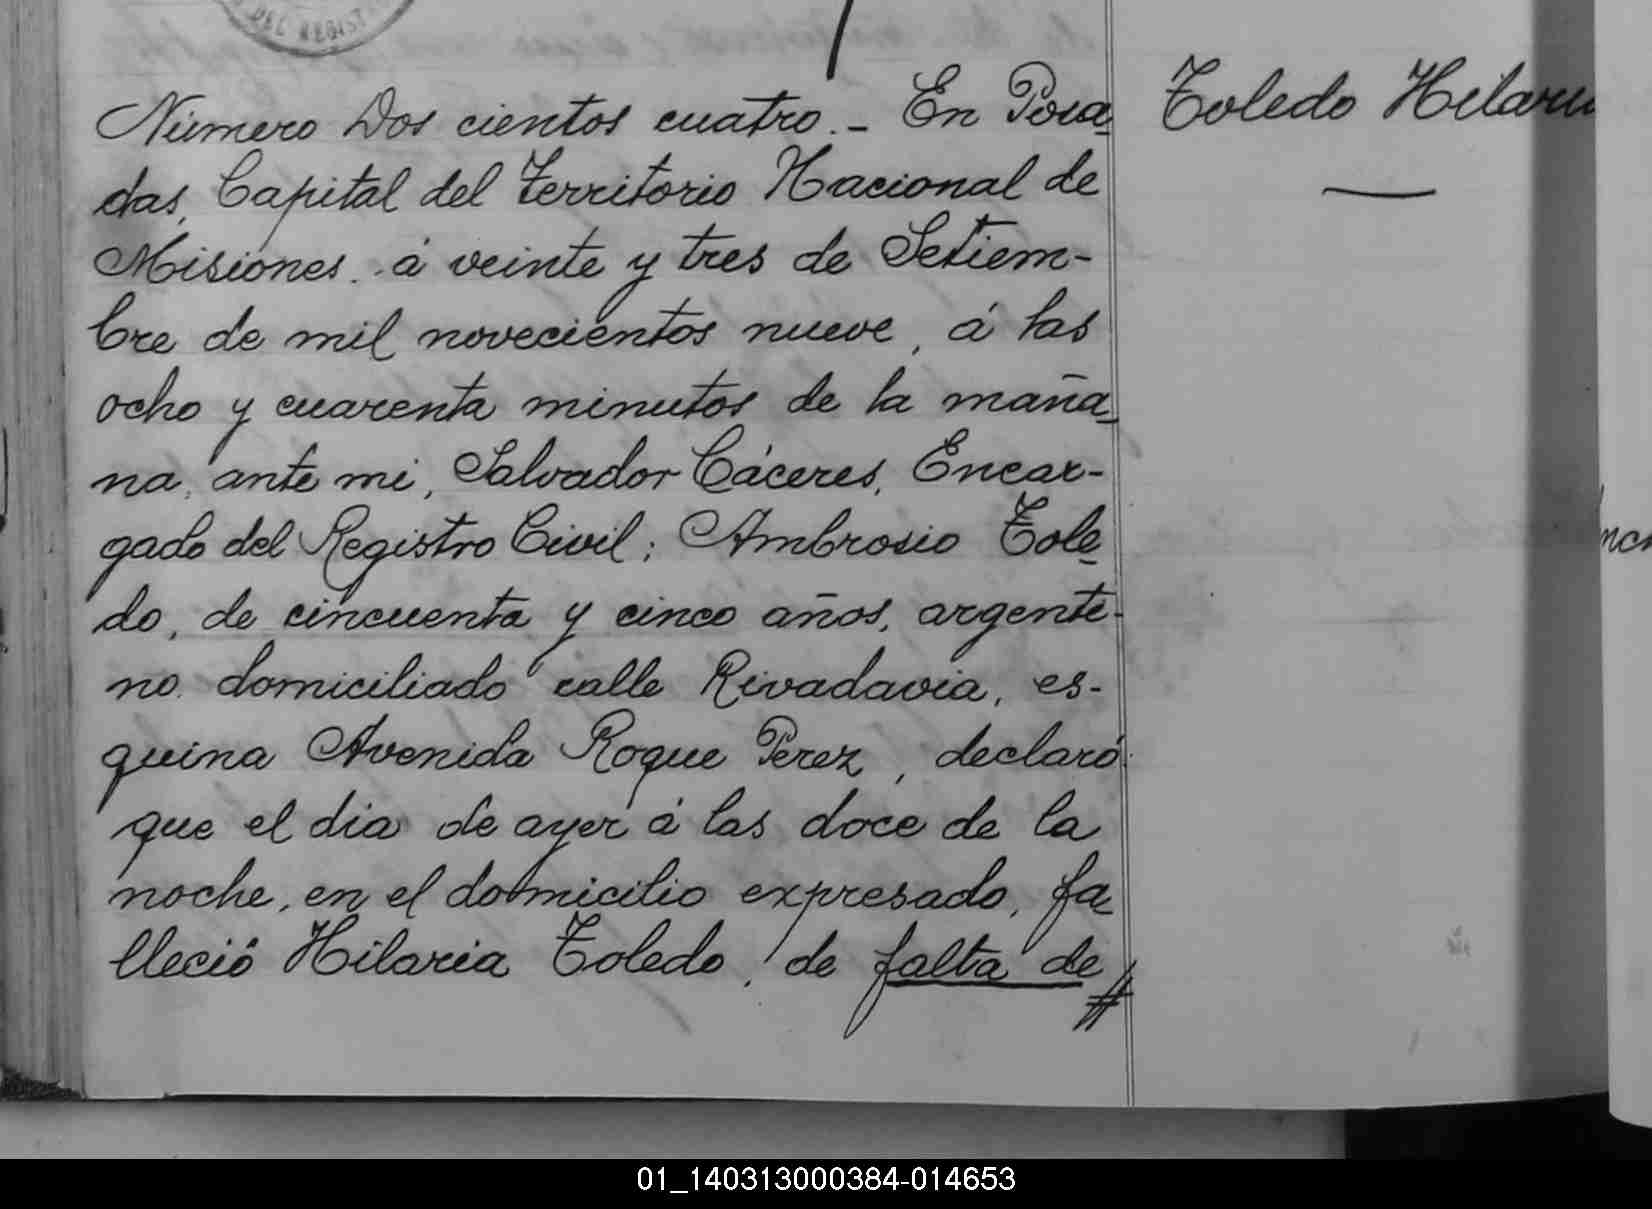 DEL REGIST
Número Dos cientos cuatro. - En Posa
das, Capital del Territorio Nacional de
Misiones. á veinte y tres de Setiem-
bre de mil novecientos nueve, á las
ocho y cuarenta minutos de la maña
na, ante mi, Salvador Cáceres, Encar-
gado del Registro Civil; Ambrosio Tole
do, de cincuenta y cinco años, argenti-
no domiciliado calle Rivadavia, es-
quina Avenida Roque Perez, declaró:
que el dia de ayer á las doce de la
noche, en el domicilio expresado, fa
lleció Hilaria Toledo, de falta de
#
Toledo Hilaria
01_140313000384-014653